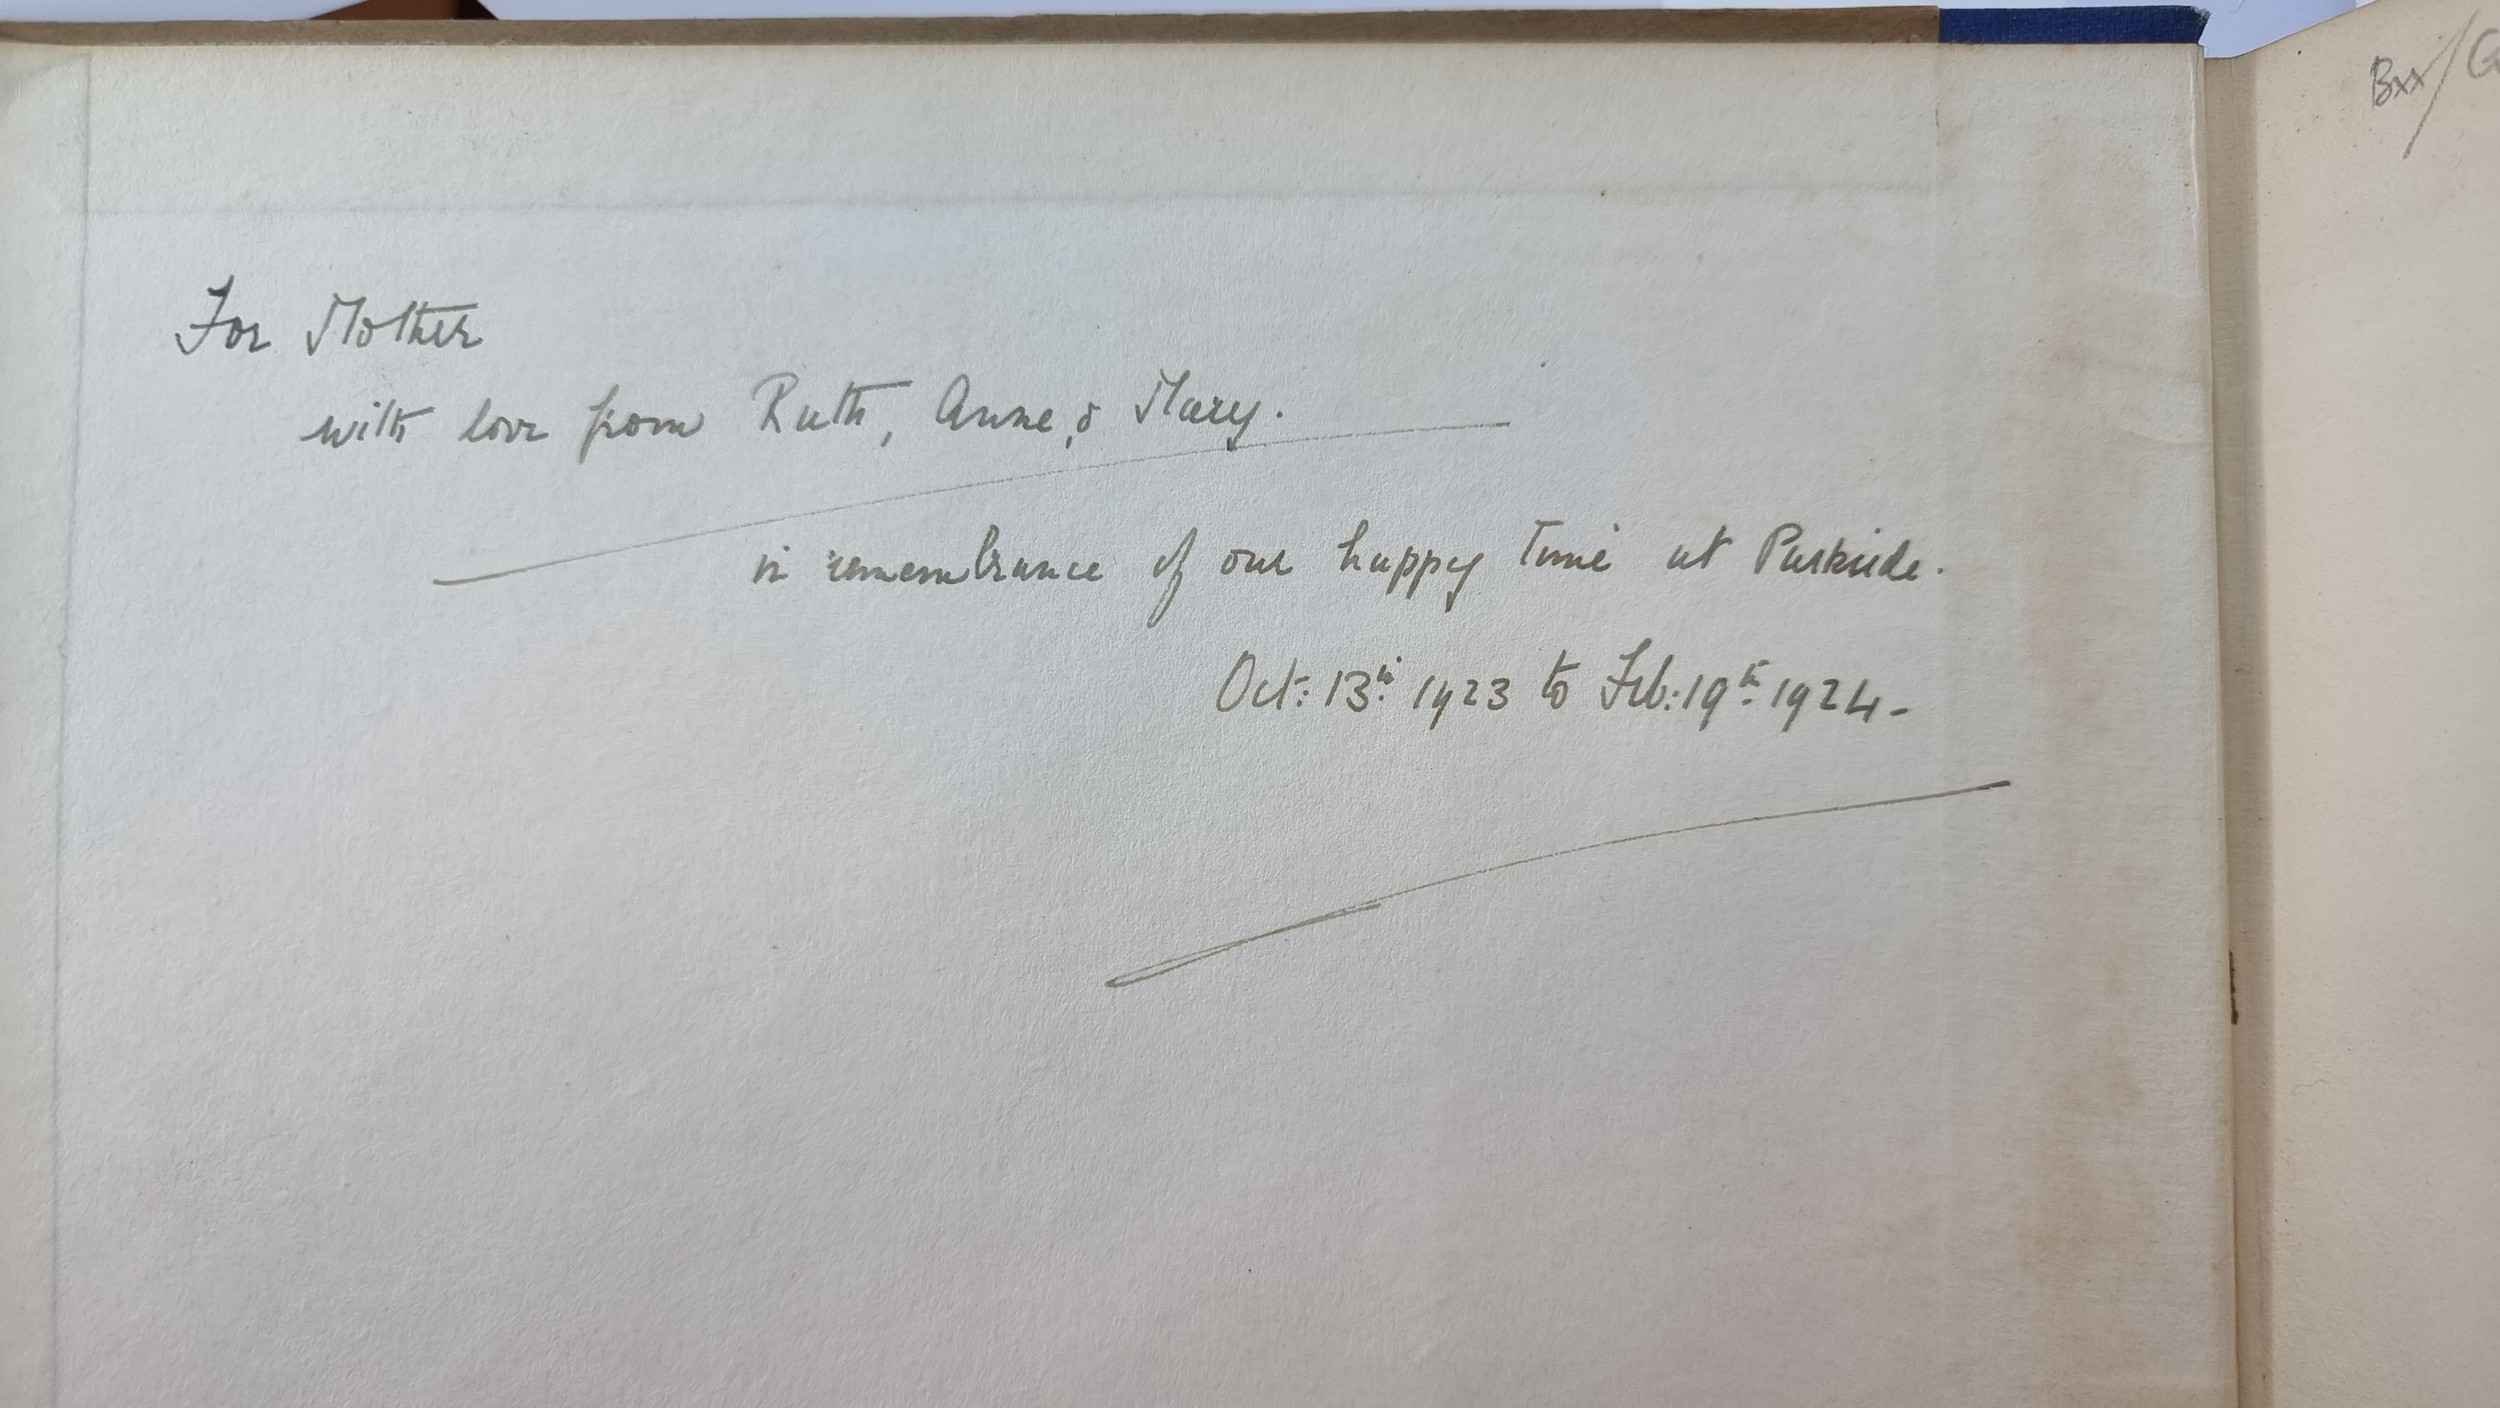 For Mother
with love from Ruth, Anne, & Mary.
in remembrance of our happy time at Parkside.
Oct: 13th 1923 to Feb: 19th 1924-
Bxx/